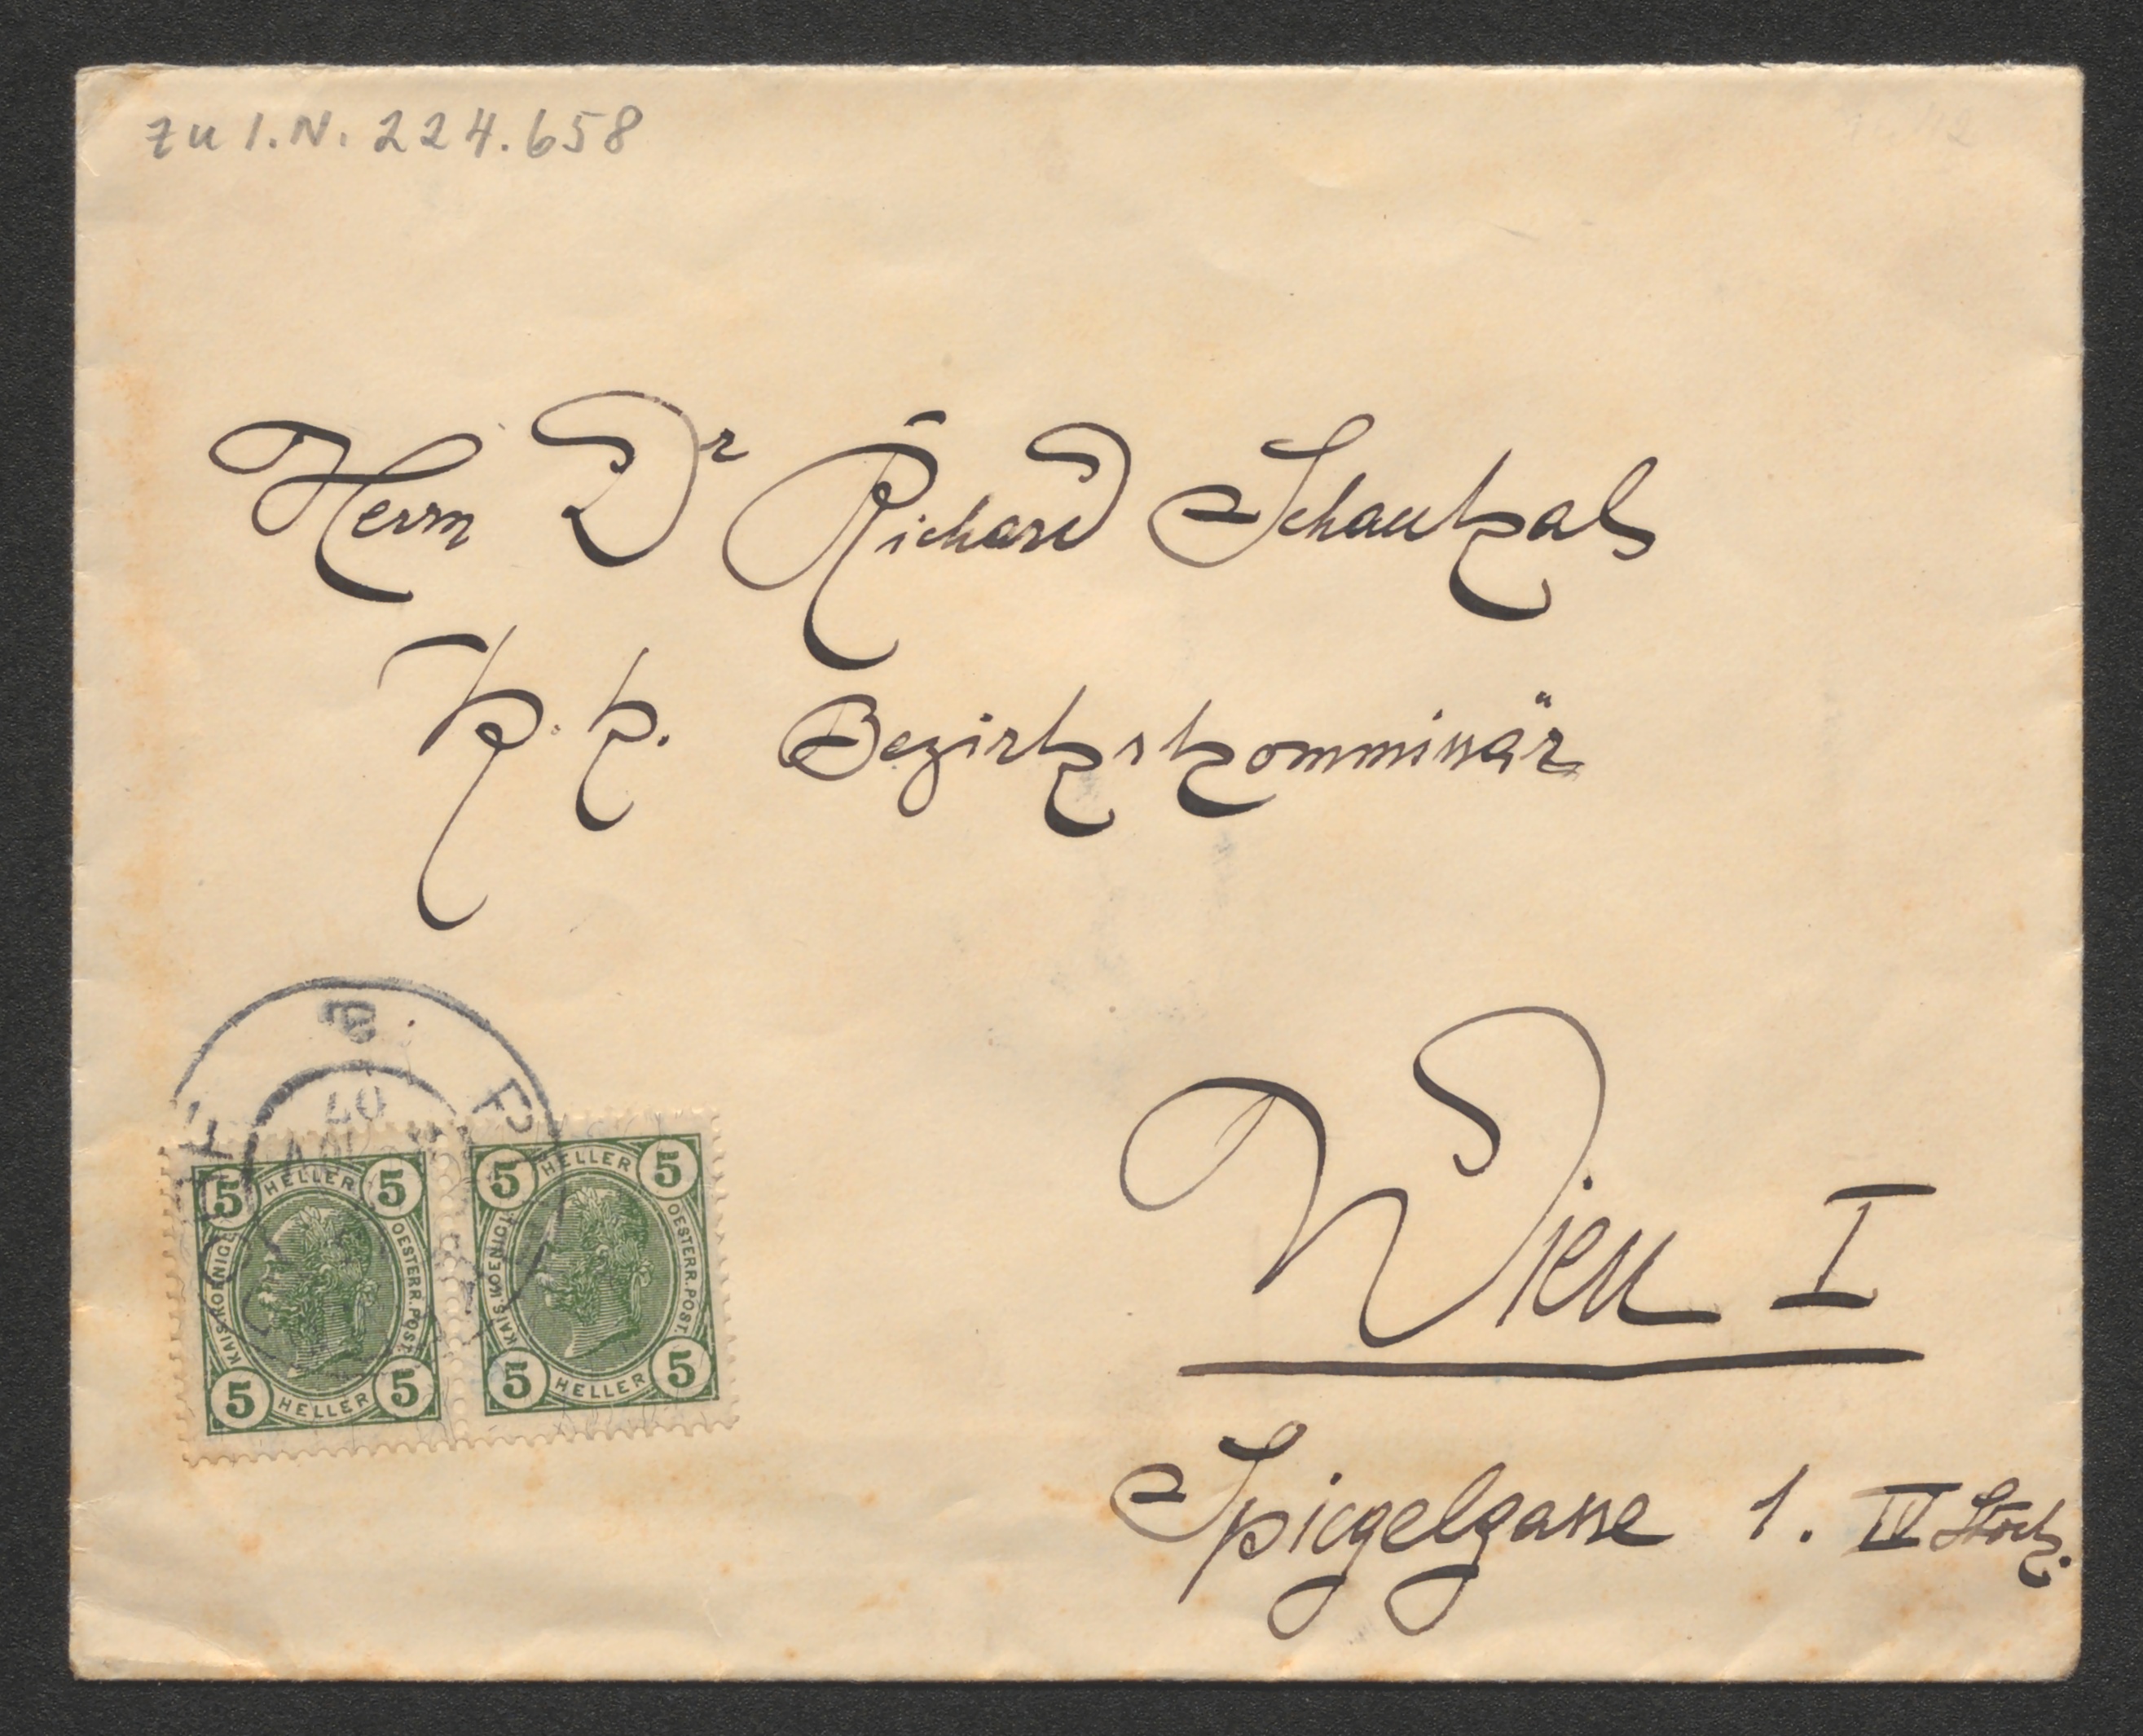 zu I.N. 224.658
Herrn Dr Richard Schaukal
k. k. Bezirkskommissär
Wien I
Spiegelgasse 1. IV Stock.
B
07
5 HELLER 5
KAIS. KOENIGL. OESTERR. POST.
5 HELLER 5
5 HELLER 5
KAIS. KOENIGL. OESTERR. POST.
5 HELLER 5